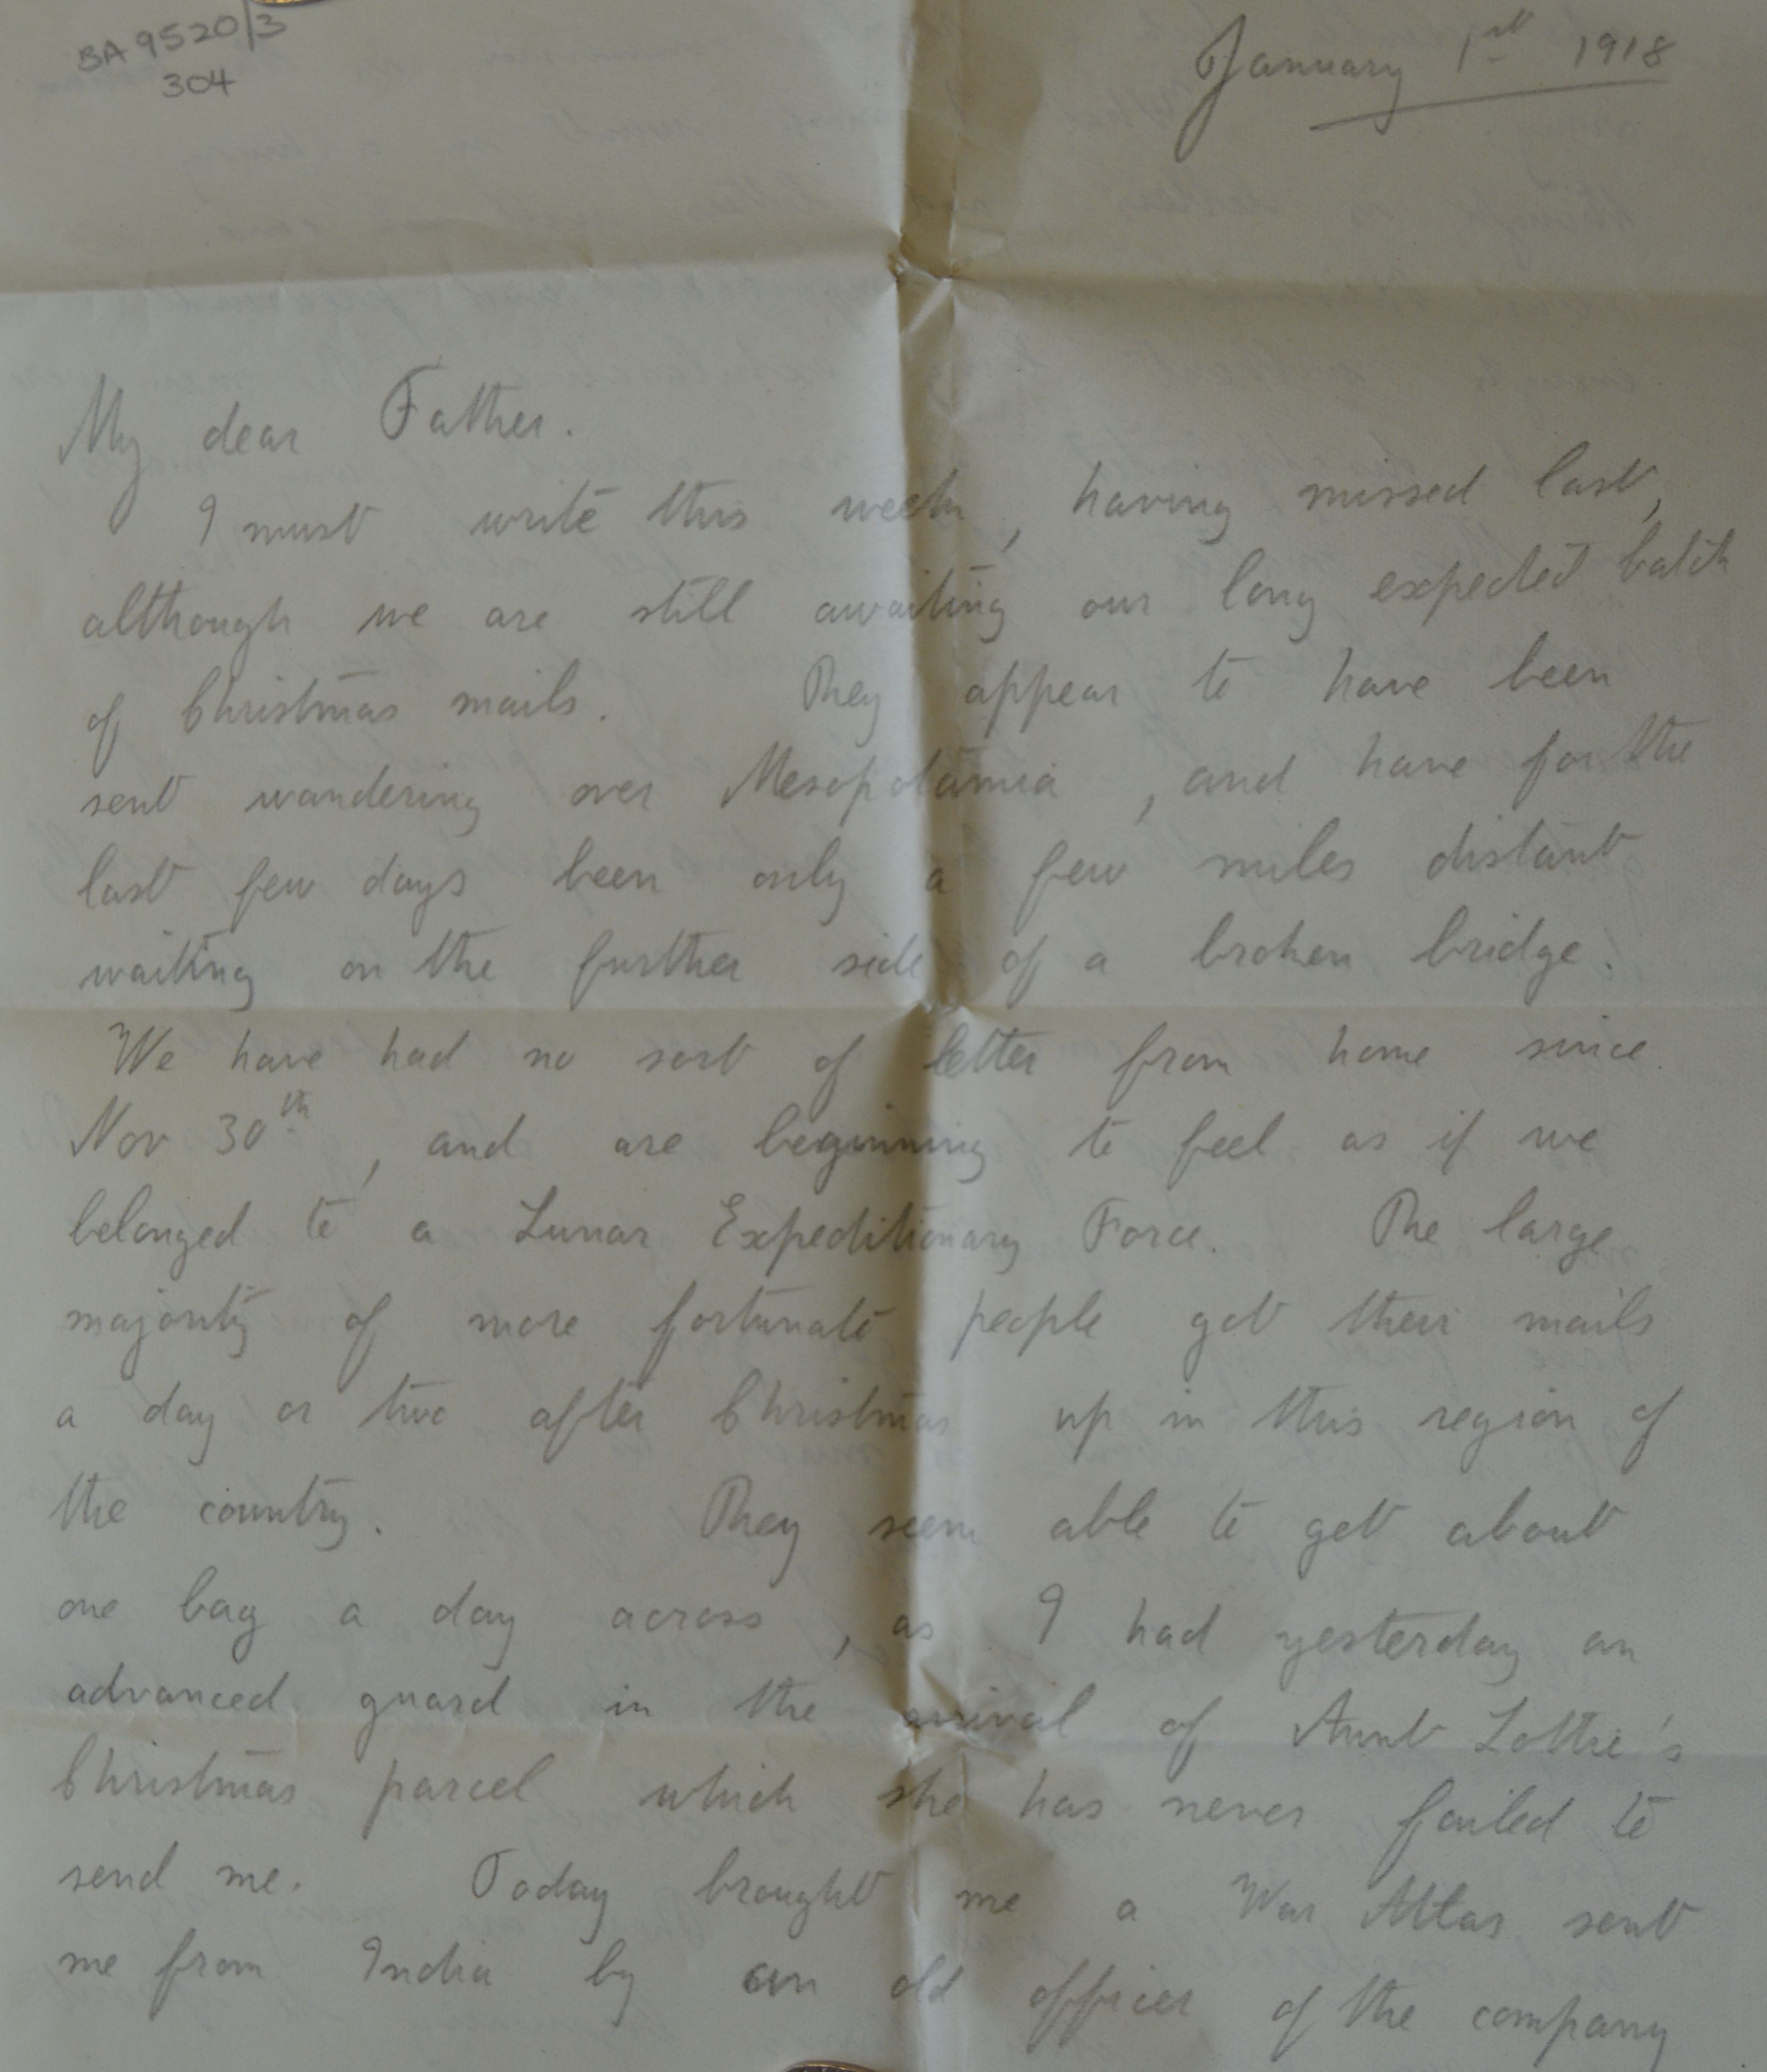 BA 9520/3
304
January 1st 1918
My dear Father.
I must write this week, having missed last,
although we are still awaiting our long expected batch
of Christmas mails. They appear to have been
sent wandering over Mesopotamia, and have for the
last few days been only a few miles distant
waiting on the further side of a broken bridge.
We have had no sort of letter from home since
Nov 30th, and are beginning to feel as if we
belonged to a Lunar Expeditionary Force. The large
majority of more fortunate people got their mails
a day or two after Christmas up in this region of
the country. They seem able to get about
one bag a day across, as I had yesterday an
advanced guard in the arrival of Aunt Lottie's
Christmas parcel which she has never failed to
send me. Today brought me a War Atlas sent
me from India by an old officer of the company